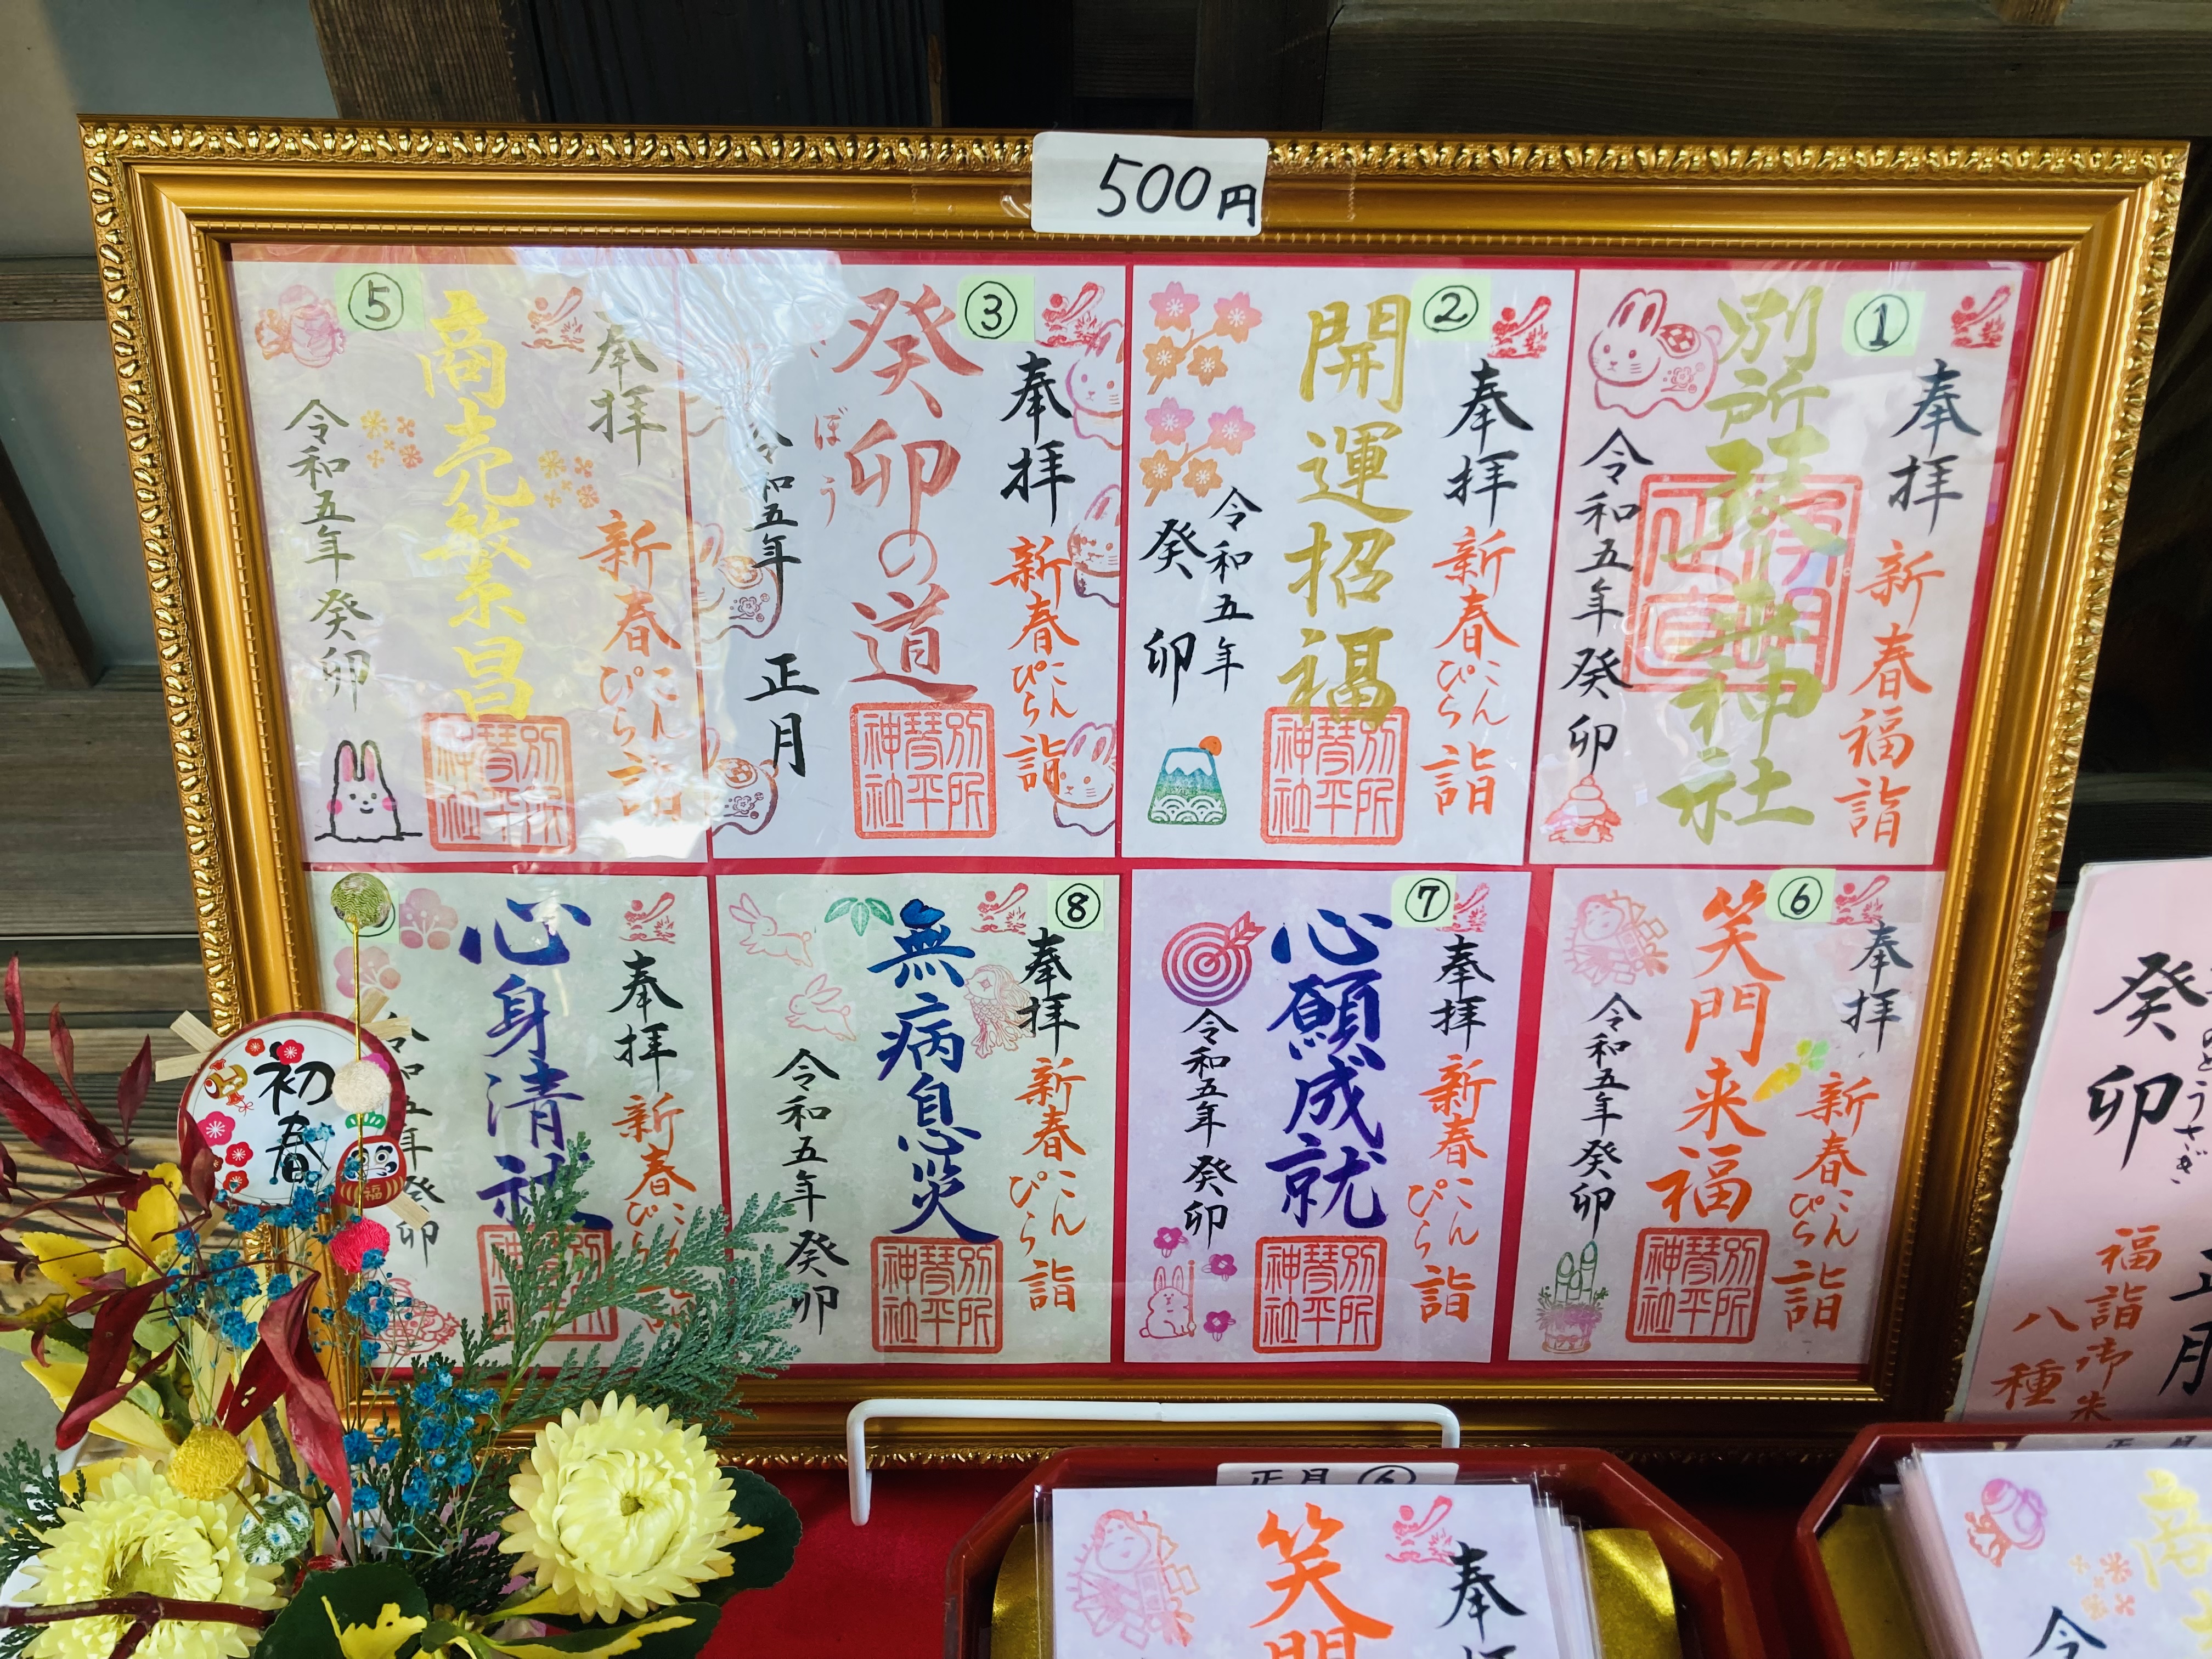 500円
①
奉拝
新春福詣
別所琴平神社
令和五年癸卯
②
奉拝
新春こんぴら詣
開運招福
令和五年
癸卯
別所
琴平
神社
③
奉拝
新春こんぴら詣
癸卯の道
ぼう
令和五年 正月
別所
琴平
神社
⑤
奉拝
新春こんぴら詣
商売繁昌
令和五年癸卯
別所
琴平
神社
⑥
奉拝
新春こんぴら詣
笑門来福
令和五年癸卯
別所
琴平
神社
⑦
奉拝
新春こんぴら詣
心願成就
令和五年癸卯
別所
琴平
神社
⑧
奉拝
新春こんぴら詣
無病息災
令和五年癸卯
別所
琴平
神社
奉拝
新春こんぴら
心身清
令和五年癸卯
初春
福
癸卯
うさぎ
正月
福詣御朱
八種
正月⑥
奉拝
笑門
正月
商
令